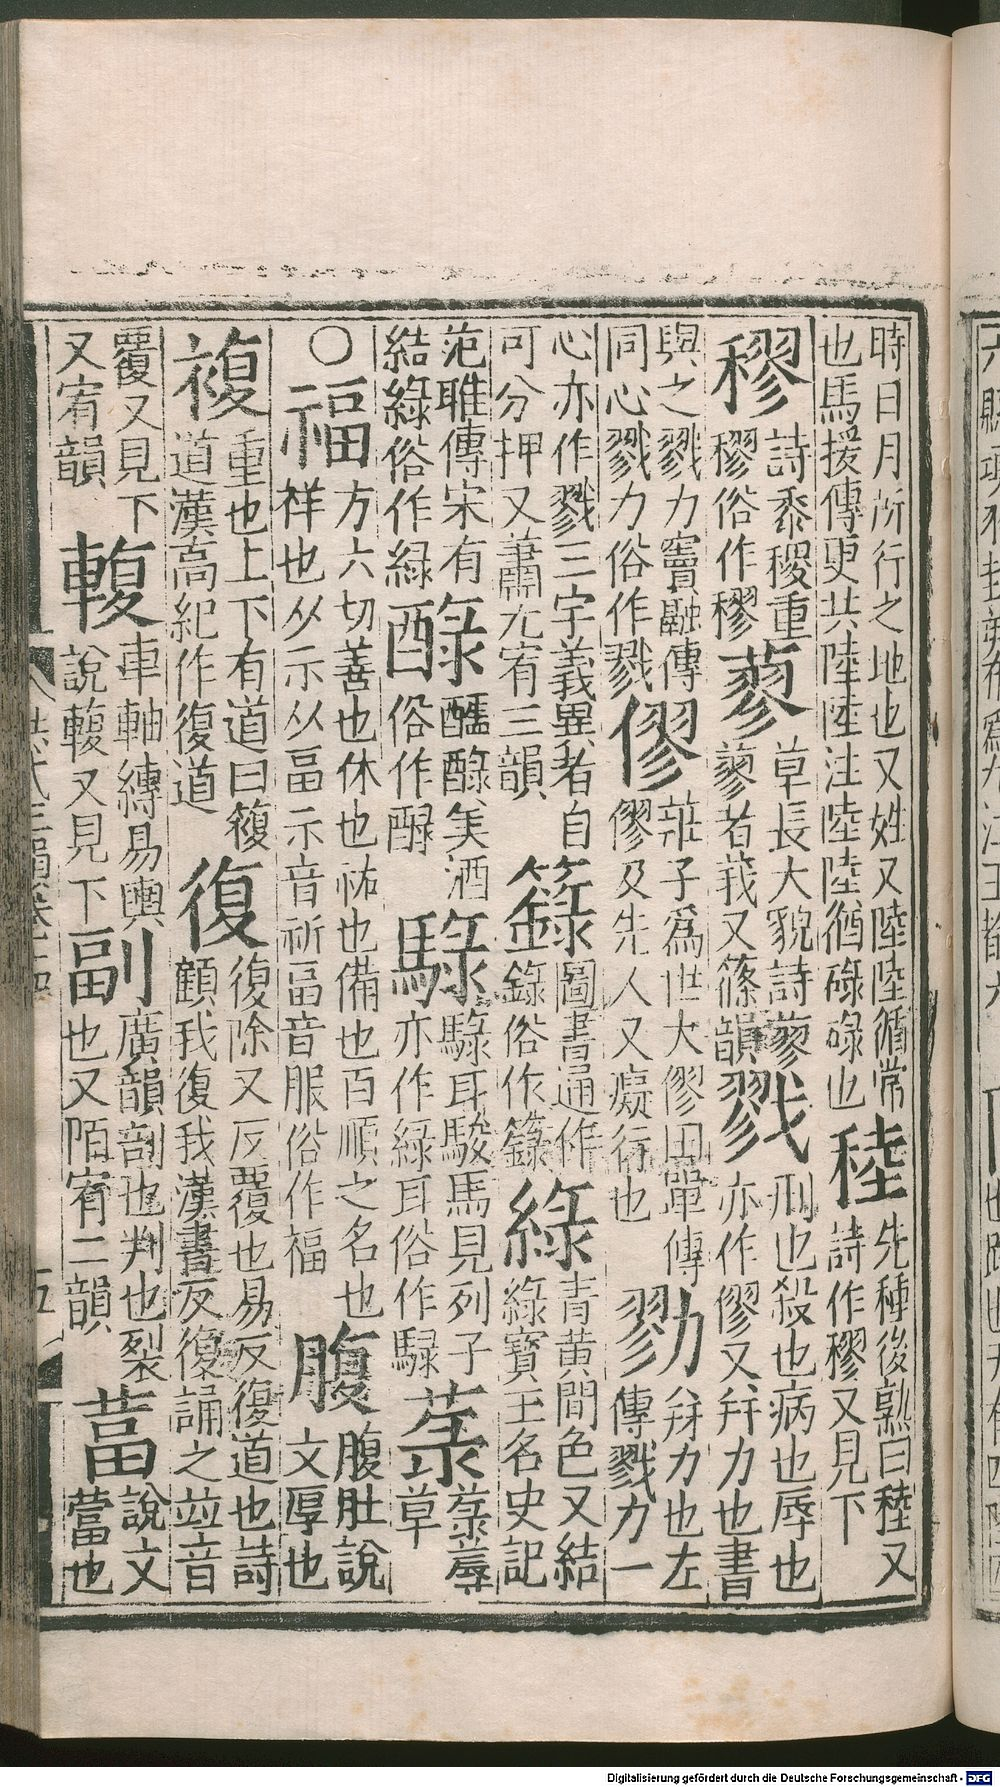 時日月所行之地也又姓又陸陸循常也馬援傳更共陸陸注陸陸猶碌碌也稑先種後熟曰稑又詩作穋又見下
穋詩黍稷重穋俗作穋蓼草長大貌詩蓼蓼者莪又篠韻戮刑也殺也病也辱也亦作僇又并力也書
與之戮力竇融傳同心戮力俗作戮僇莊子為世大僇田單傳僇及先人又癡行也勠并力也左傳戮力一
心亦作戮三字義異者自可分押又蕭尤宥三韻籙圖書通作錄俗作籙綠青黃間色又結綠寶玉名史記
范雎傳宋有結綠俗作緑醁醽醁美酒俗作醁騄騄耳駿馬見列子亦作綠耳俗作騄菉菉蓐草
○福方六切善也休也祐也備也百順之名也祥也从示从畐示音祈畐音服俗作福腹腹肚說文厚也
複重也上下有道曰複道漢高紀作復道復復除又反覆也易反復道也詩顧我復我漢書反復誦之並音
覆又見下又宥韻輹車軸縛易輿說輹又見下副廣韻剖也判也裂也又陌宥二韻葍說文葍也
洪武正韻卷十四 五
Digitalisierung gefördert durch die Deutsche Forschungsgemeinschaft - DFG